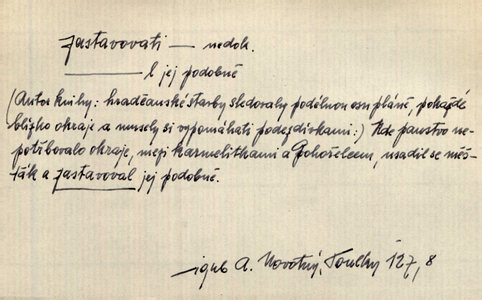 zastavovati — nedok.
——— l jej podobně
(Autor knihy: hradčanské stavby sledovaly podélnou osu pláně, pokaždé
blízko okraje a musely si vypomáhati podezdívkami:) Kde panstvo ne-
potřebovalo okraje, mezi karmelitkami a Pohořelcem, usadil se měš-
ťák a zastavoval jej podobně.
A. Novotný, Toulky 127, 8